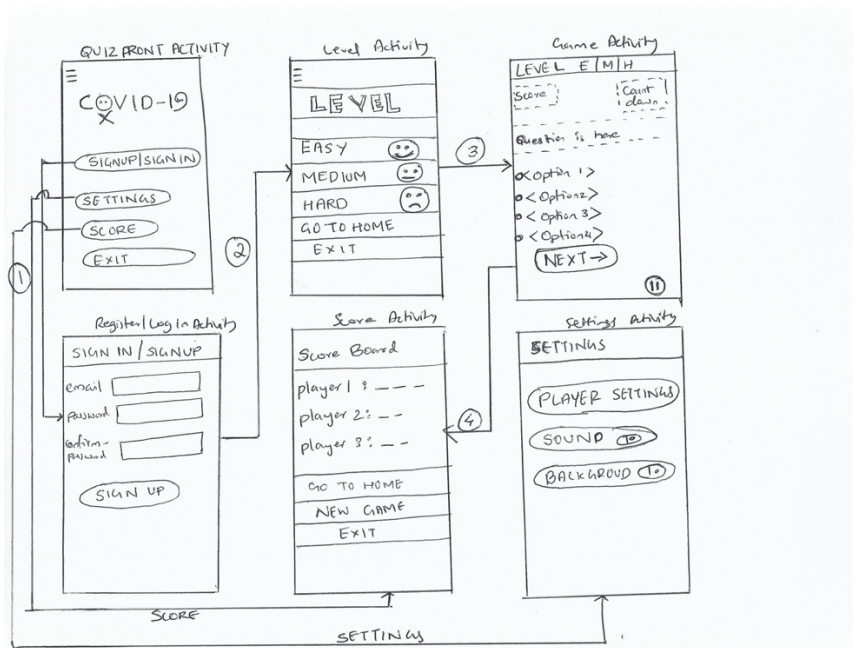 QUIZ FRONT ACTIVITY
COVID-19
X
SIGNUP/SIGN IN
SETTINGS
SCORE
EXIT
1
2
Level Activity
LEVEL
EASY
MEDIUM
HARD
GO TO HOME
EXIT
3
Game Activity
LEVEL E|M|H
Score
Count
down
Question is here
<Option 1>
<Option2>
<Option 3>
<Option4>
NEXT →
Register/Log In Activity
SIGN IN/SIGNUP
email
Password
confirm-
password
SIGN UP
Score Activity
Score Board
player 1 : _ _ _
player 2: _ _
player 3: _ _
GO TO HOME
NEW GAME
EXIT
4
Settings Activity
SETTINGS
PLAYER SETTINGS
SOUND
BACKGROUD
SCORE
SETTINGS